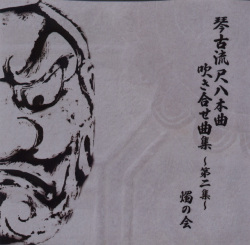 琴古流尺八本曲
吹き合せ曲集
～第二集～
燭の会